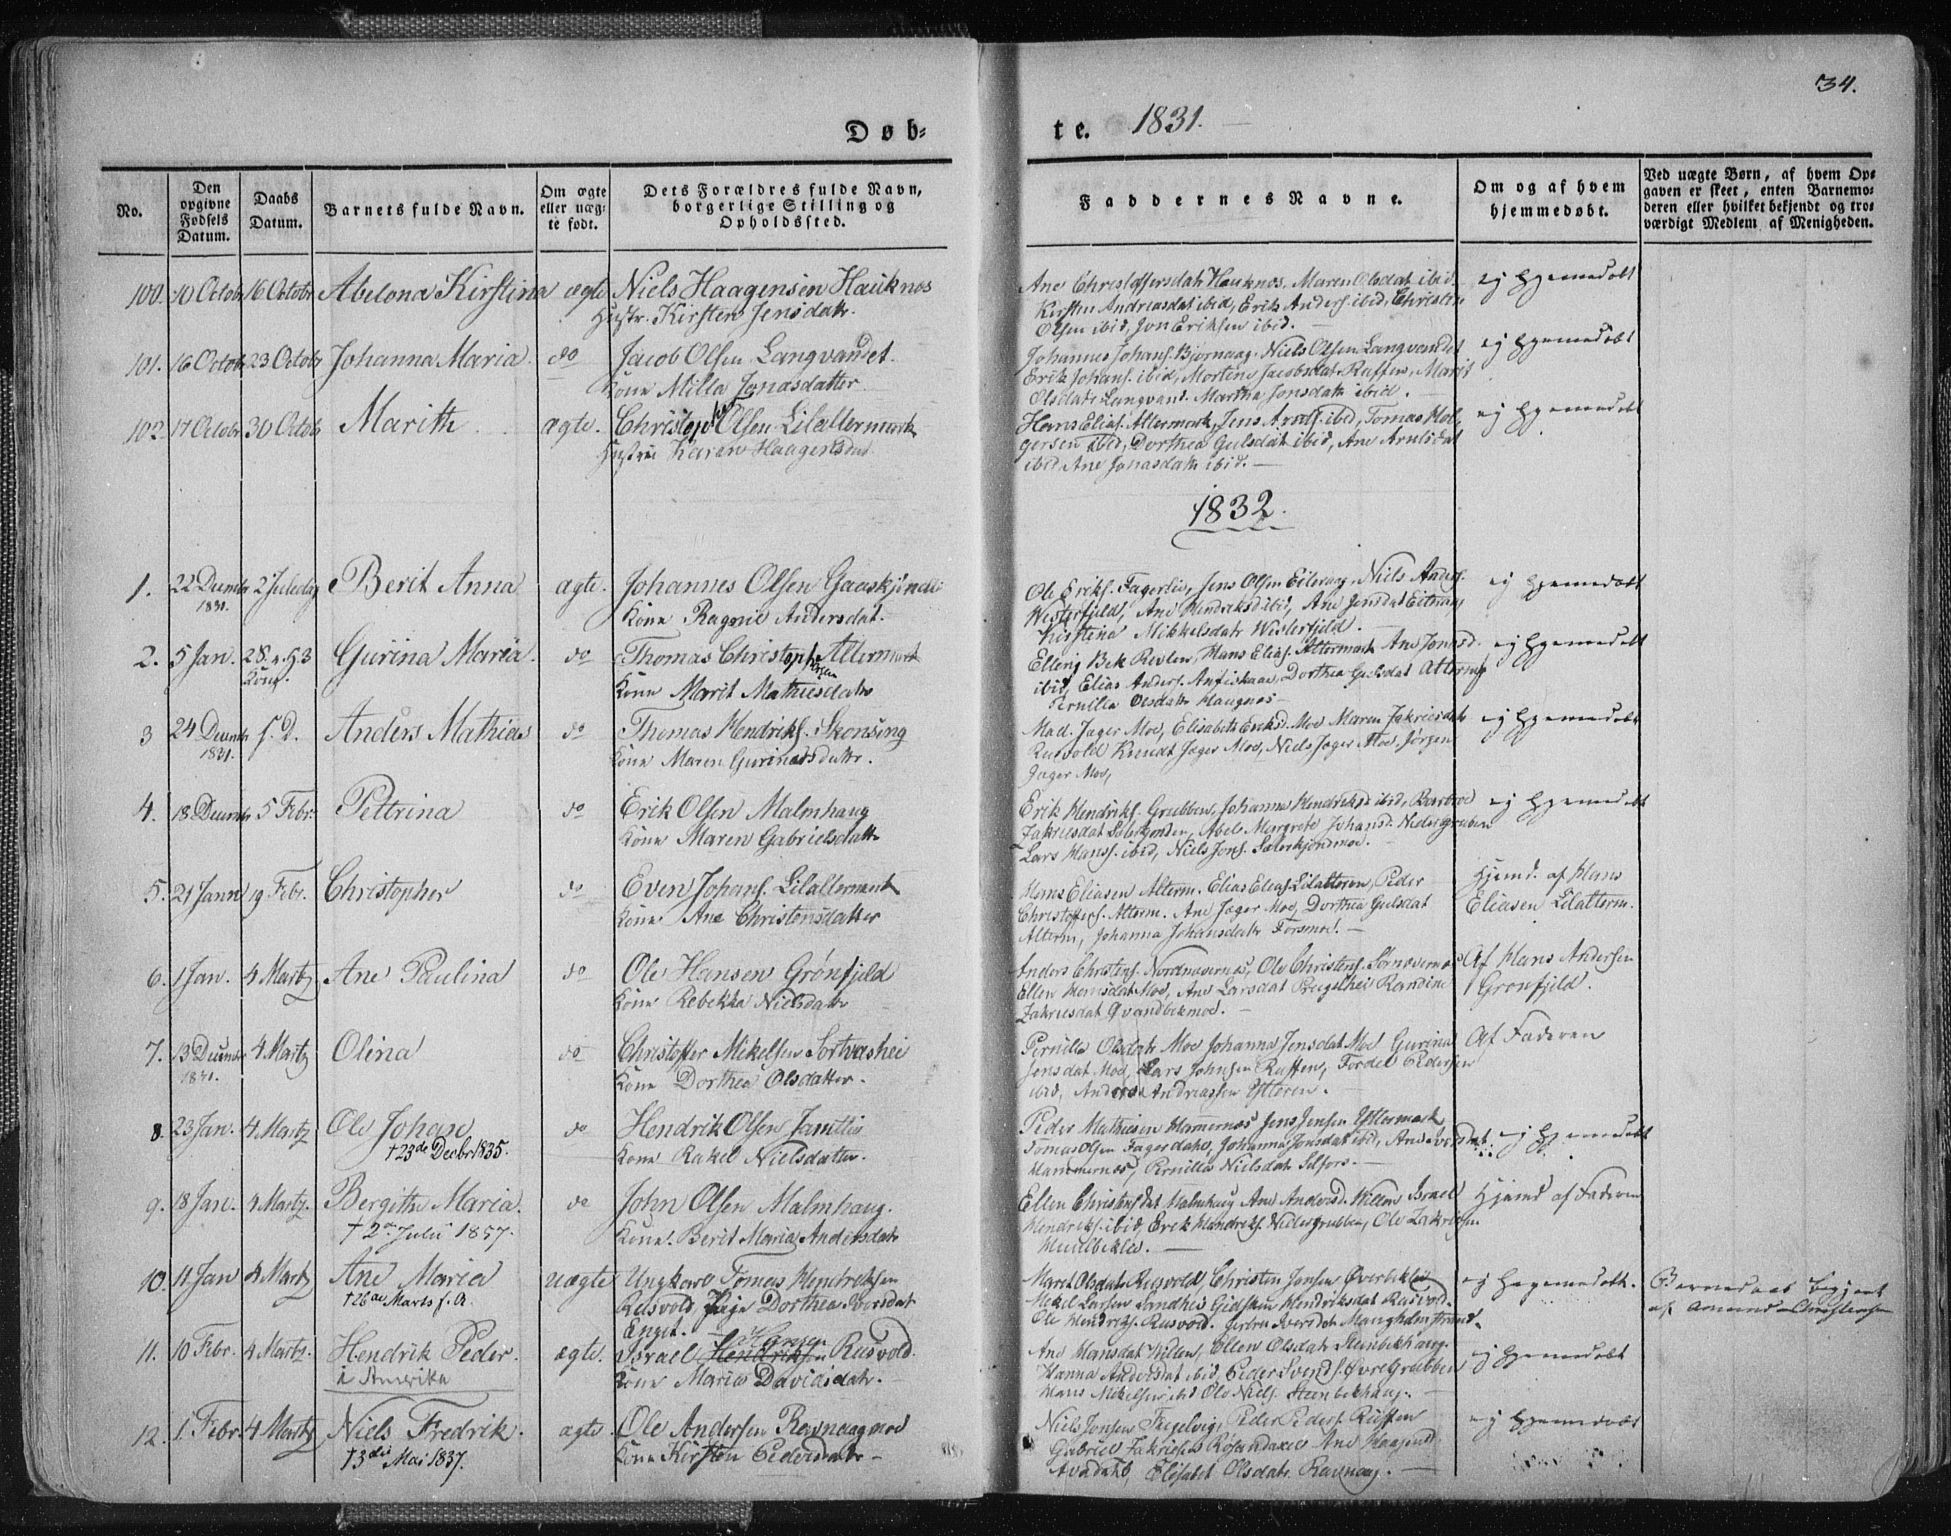 34.
Døb-
te. 1831.
No.
Den opgivne Fødsels Datum.
Daabs Datum.
Barnets fulde Navn.
Om ægte eller uægte født.
Dets Forældres fulde Navn, borgerlige Stilling og Opholdssted.
Faddernes Navne.
Om og af hvem hjemmedøbt.
Ved uægte Børn, af hvem Opgaven er skeet, enten Barnemoderen eller hvilket bekjendt og troværdigt Medlem af Menigheden.
100. 10 Octobr 16 Octobr Abelona Kirstina ægte Niels Haagensen Hauknes
Hustr. Kirsten Jensdatr.
Ane Christophersdatr Hauknes, Maren Olsdat ibid.
Kirsten Andreasdat ibid, Erik Anders. ibid, Christen
Olsen ibid, Jon Eriksen ibid.
ej hjemmedøbt
101. 16 Octobr 23 Octobr Johanna Maria do Jacob Olsen Langvandet
Kone Milla Jonasdatter
Johannes Johans. Bjørnaag. Niels Olsen Langvandet
Erik Johans. ibid, Morten Jacobsdat Røffen, Marit
Olsdatr Langvand. Martha Jonsdatr ibid.
ej hjemmedøbt
102 17 Octobr 30 Octob Marith ægte. Christopher Olsen Lilaltermark
Hustrue Karen Haagensdat
Hans Elias. Altermark, Jens ibid, Tomas Hol-
gersen ibid, Dorthea Gulsdat ibid, Ane
ibid Ane Jonasdatr ibid.
ej hjemmedøbt
1832.
1. 22 Decembr 1831. 2 Juledag Berit Anna ægte. Johannes Olsen
Kone Ragnil Andersdat.
Ole Eriks. Fagerlie, Jens Olsen Eiteraag, Niels Anders.
Westerfjeld, Ane Hendriksd ibid, Ane Jensdat Eiteraag
Kirstina Mikkelsdatr Westerfjeld.
ej hjemmedøbt
2. 5 Jan. 28. Gurina Maria. do Thomas Christophersen Altermark
Kone Marit Mathiesdatr
Ellerij Bek Revlen, Hans Elias. Altermark Ane Jonasd.
ibid, Elias Anders. Dorthea Gulsdat Altermk
Pernilla Olsdatr Haugnæs
ej hjemmedøbt
3 24 Decembr 1831. s. D. Anders Mathias do Thomas Hendriks. Skonsing
Kone Maren datr.
Mad. Jager Moe, Elisabeth Eriksd. Moe Maren Zakriesdatr
Rusvold Knudt Jæger Moe, Niels Jæger Moe, Jørgen
Jæger Moe,
ej hjemmedøbt
4. 18 Decembr 5 Febr. Pettrina do Erik Olsen Malmhaug
Kone Maren Gabrielsdattr
Erik Hendriks. Grubben, Johanna Hendriksd ibid, Barbroe
Zakriesdat Abel Margrete Johansd. Nidergruben
Lars Hans. ibid, Niels Jons.
ej hjemmedøbt
5. 21 Jann 19 Febr. Christopher do Even Johans. Lilaltermark
Kone Ane Christensdatter
Hans Eliasen Alterm. Elias Elias. Lilalteren, Peder
Christoffers. Alterm. Ane Jæger Moe, Dorthea Gulsdat
Alterm, Johanna Johansdatr Forsmoe.
Hjemd. af Hans
Eliasen Lilalterm.
6. 1 Jan. 4 Martz Ane Paulina do Ole Hansen Grønfjeld
Kone Rebekka Nielsdatr
Anders Christens. Nordnæsernæs, Ole Christens.
Ellen Hansdat Moe, Ane Larsdat Randine
Zakriesdat Qvandbekmoe.
Af Hans Andersen
Grønfjeld.
7. 13 Decembr 1831. 4 Martz Olina do Christoffer Mikelsen Sortvashei
Kone Dorthea Olsdatter.
Pernilla Olsdatr Moe Johanna Jensdat Moe Gurina
Jensdat Moe, Lars Johnsen Røffen, Fordel Pedersen
ibid, Anders Andreassen Ytteren.
Af Faderen
8. 23 Jan. 4 Martz Ole Johan do Hendrik Olsen Jamtlie
†23de Decbr 1835.
Kone Rakel Nielsdatter.
Peder Mathiesen Hammernæs Jens Jensen Yttermark
Tomas Olsen Fagerdahl, Johanna Jonsdat ibid, Ane Iversdat
Hammernæs, Pernilla Nielsdatr Selfors.
ej hjemmedøbt
9. 18 Jan. 4 Martz. Bergithe Maria. do John Olsen Malmhaug.
† 2den Julii 1857.
Kone. Berit Maria Andersdatr
Ellen Christensdat Malmhaug Ane Andersd. Willen, Israel
Hendriks. ibid, Erik Hendriks. Nidergrubben, Ole Zakriesen

Hjemd af Faderen
10. 11 Jan 4 Martz Ane Maria uægte Ungkarl Tomas Hendriksen
†26de Marts s. A.
Rusvold, Pige Dorthea Iversdat
Enget.
Maret Olsdat Rusvold, Christen Jonsen Øverbeklie
Mikel Larsen Sandhei Hendriksdat Rusvold.
Ole Hendriks. Rusvold. Iversdat
ej hjemmedøbt.
af Amund Christensen
11. 10 Febr. 4 Martz. Hendrik Peder. ægte. Israel Hendriksen Hansen Rusvold.
i Amerika
Kone Maria Davidsdatr.
Ane Hansdat Willen, Ellen Olsdat Steenbekhaug
Hanna Andersdat ibid, Peder Svends. Øvregrubben
Hans Mikelsen ibid Ole Niels. Steenbekhaug.
ej hjemmedøbt
12. 1 Febr 4 Martz Niels Fredrik. ægte. Ole Andersen Ravnaagmoe
†3die Mai 1837.
Kone Kirsten Pedersdatr
Niels Jonsen Peder Peders. Røffen
Gabriel Zakriesen Ane Haagensd
Elisabet Olsdatr Ravnaag.
ej hjemmedøbt